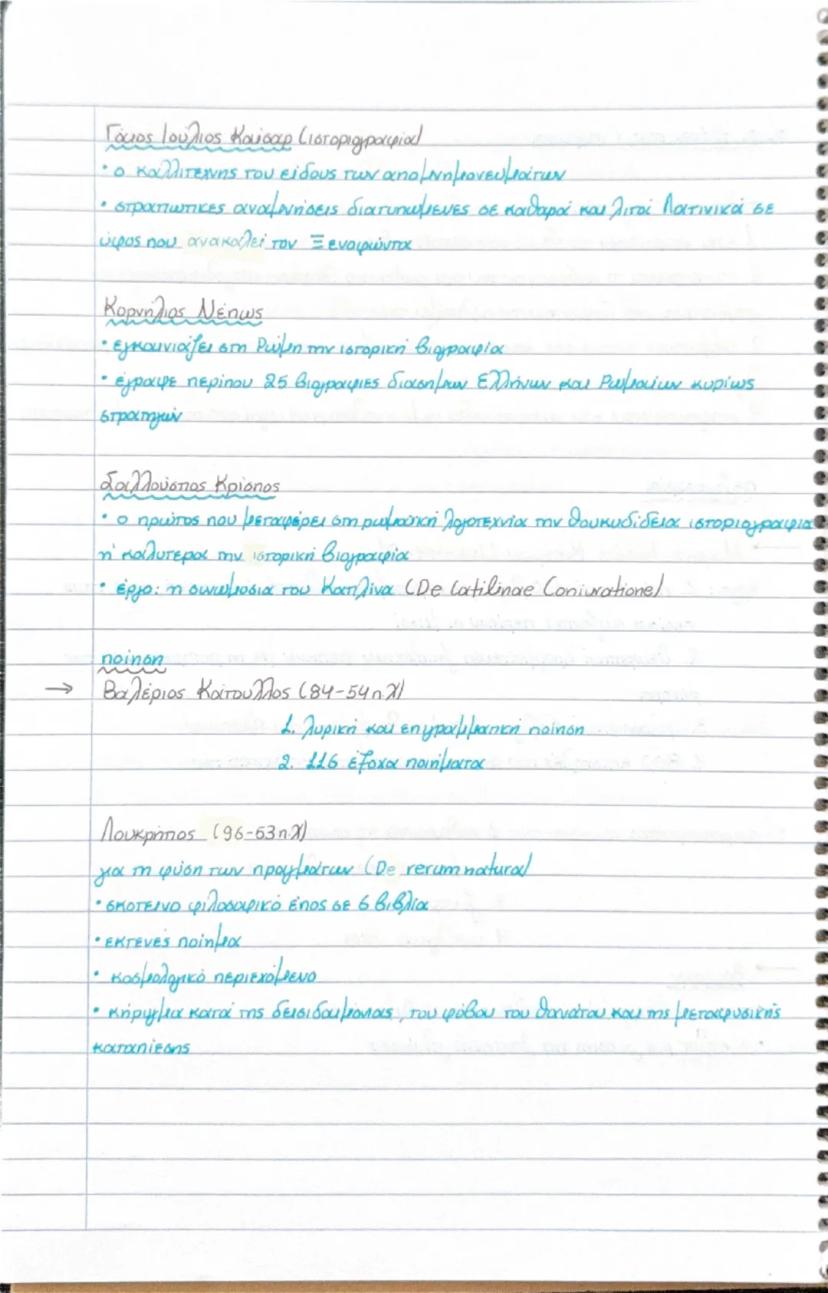 Γάιος Ιούλιος Καίσαρ (ιστοριογραφία)
• ο καλλιτέχνης του είδους των απομνημονευμάτων
• στρατιωτικές αναμνήσεις διατυπωμένες σε καθαρά και λιτά Λατινικά σε
ύφος που ανακαλεί τον Ξενοφώντα
Κορνήλιος Νέπως
• εγκαινιάζει στη Ρώμη την ιστορική βιογραφία
• έγραψε περίπου 25 βιογραφίες διασήμων Ελλήνων και Ρωμαίων κυρίως
στρατηγών
Σαλλούστιος Κρίσπος
• ο πρώτος που μεταφέρει στη ρωμαϊκή λογοτεχνία την θουκυδίδεια ιστοριογραφία
ή καλύτερα την ιστορική βιογραφία
• έργο: η συνωμοσία του Κατιλίνα (De Catilinae Coniuratione)
ποίηση
→ Βαλέριος Κάτουλλος (84-54 π.Χ)
1. λυρική και επιγραμματική ποίηση
2. 116 έξοχα ποιήματα
Λουκρήτιος (96-53 π.Χ)
για τη φύση των πραγμάτων (De rerum natura)
• σκοτεινό φιλοσοφικό έπος σε 6 βιβλία
• εκτενές ποίημα
• κοσμολογικό περιεχόμενο
• κήρυγμα κατά της δεισιδαιμονίας, του φόβου του θανάτου και της μεταφυσικής
καταπίεσης